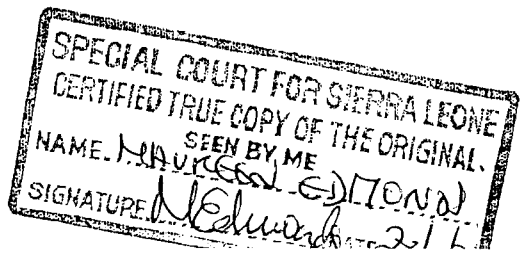 SPECIAL COURT FOR SIERRA LEONE
CERTIFIED TRUE COPY OF THE ORIGINAL.
SEEN BY ME
NAME. MAUREEN EDMOND
SIGNATURE.